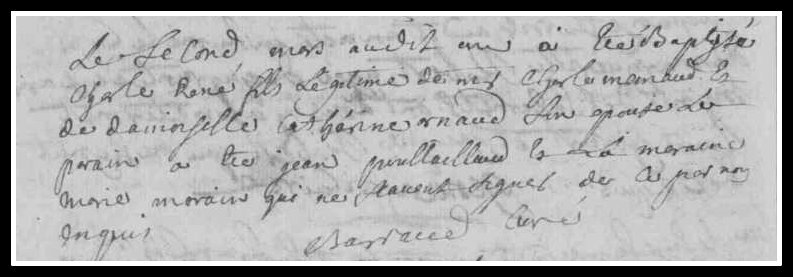 Le Second mars audit an a ete Baptisé
Charle René fils Légitime de mr Charle menaud Et
de damoiselle Cathérine rnaud Son epouse Le
parain a ete jean Et La meraine
Marie morain qui ne Savent Signer de Ce par nou
Enquis
Barraud Curé